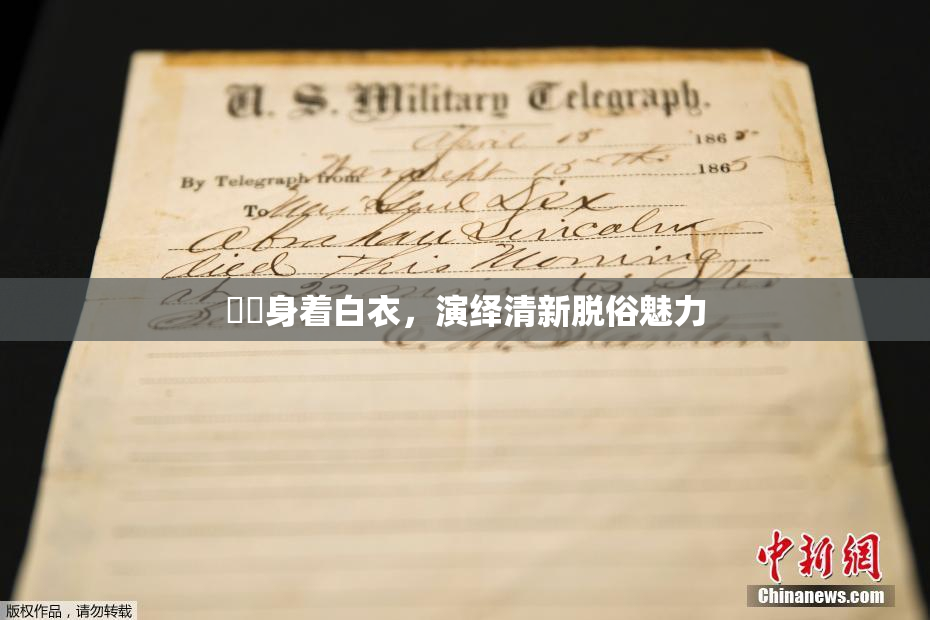 U. S. Military Telegraph.
April 15 1865
By Telegraph from War Dept 15th 1865
To Maj Genl Dix
Abraham Lincoln
died This Morning
at 22 minutes after
身着白衣，演绎清新脱俗魅力
E. M. Stanton
中新網
Chinanews.com
版权作品，请勿转载